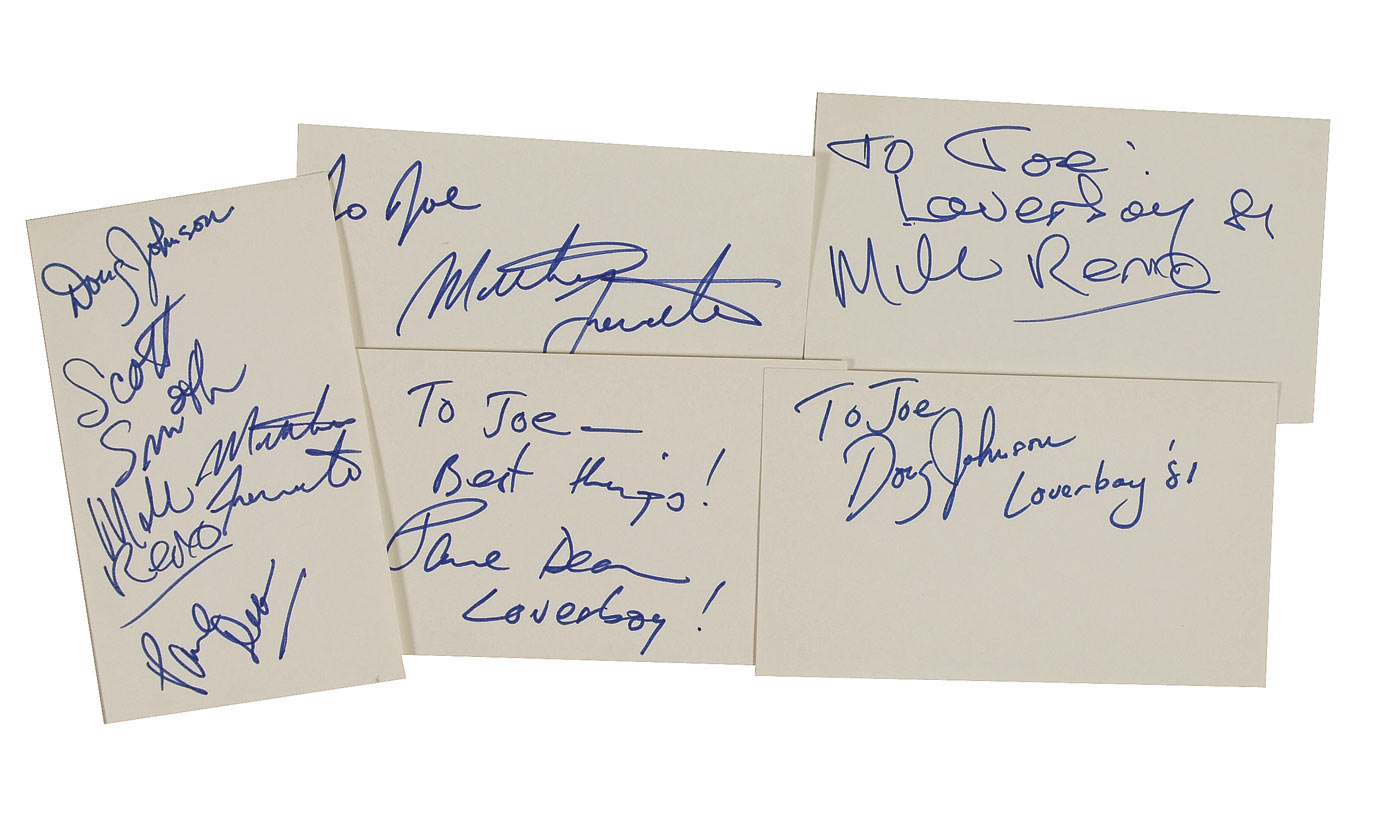 Doug Johnson
Scott
Smith
Matthew
Frenette
Mike
Reno
Paul Dean
To Joe
Matthew
Frenette
To Joe
Loverboy 81
Mike Reno
To Joe —
Best things!
Paul Dean
Loverboy!
To Joe
Doug Johnson
Loverboy '81